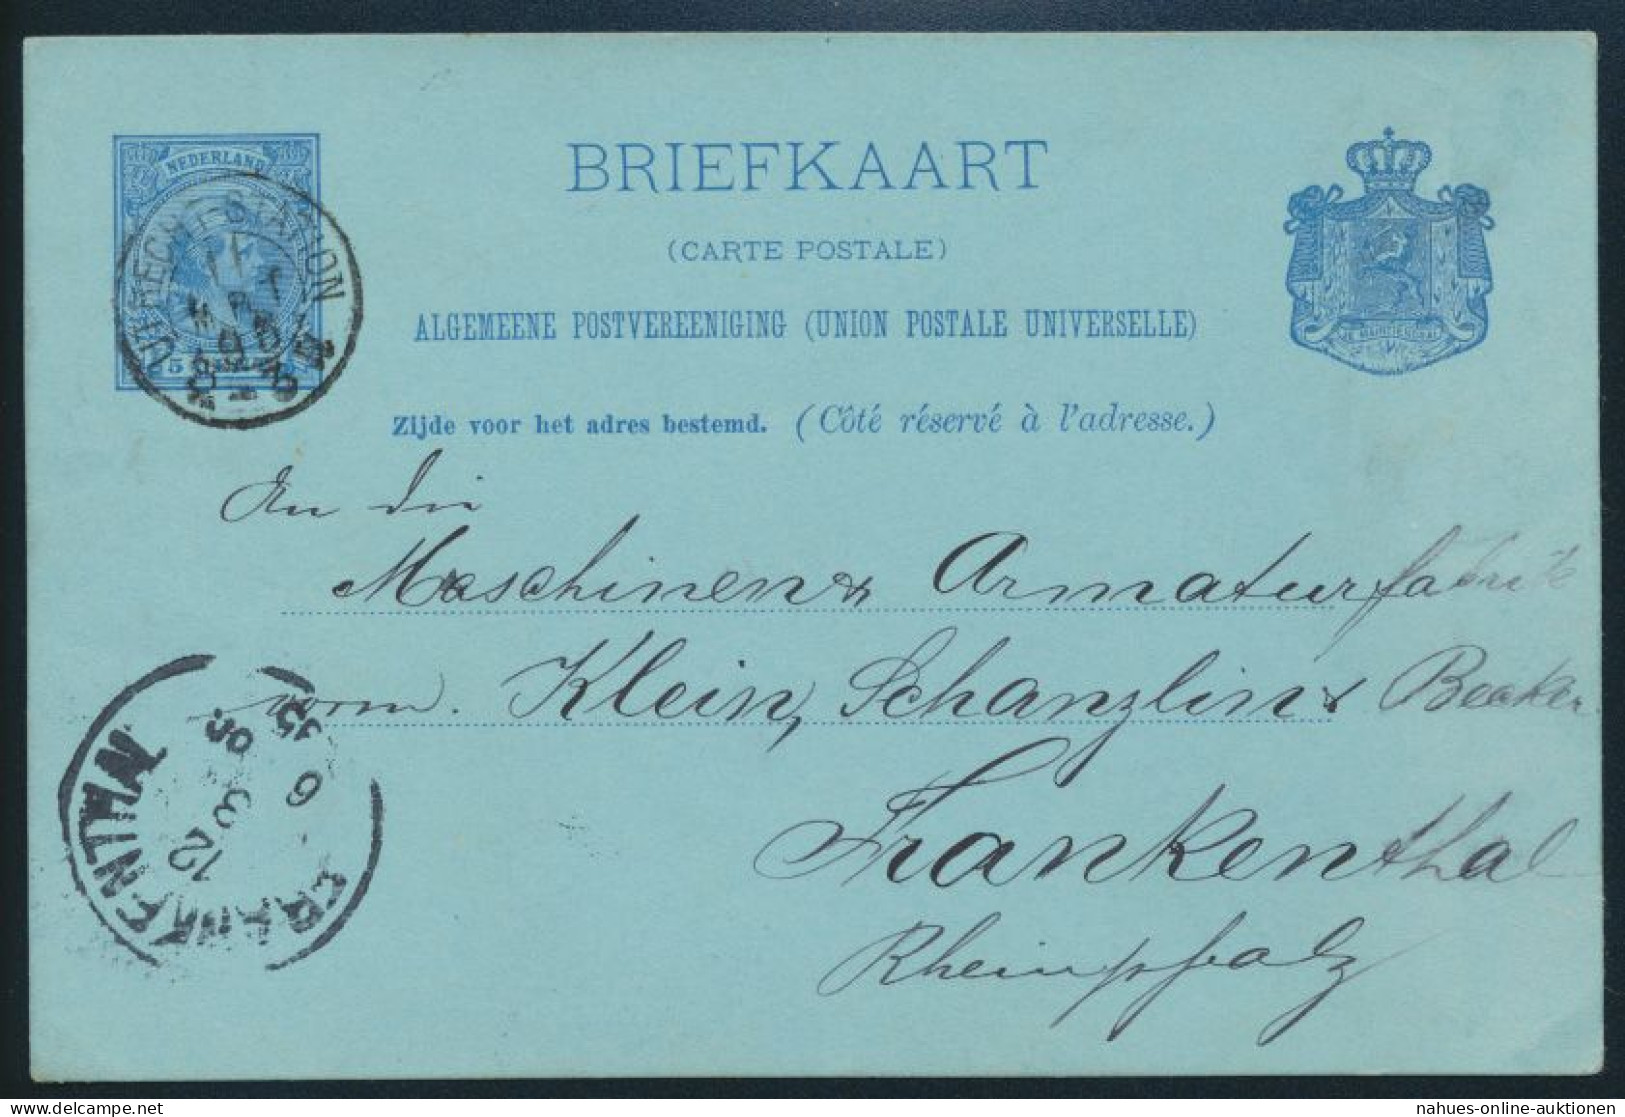 NEDERLAND
BRIEFKAART
(CARTE POSTALE)
ALGEMEENE POSTVEREENIGING (UNION POSTALE UNIVERSELLE)
Zijde voor het adres bestemd. (Côté réservé à l'adresse.)
UTRECHT-STATION
11
MRT
95
An die
Maschinen & Armaturfabrik
vorm. Klein, Schanzlin & Becker
Frankenthal
Rheinpfalz
FRANKENTHAL
12
3
95
6
nahues-online-auktionen